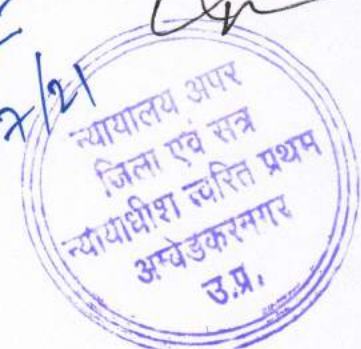 7/21
न्यायालय अपर
जिला एवं सत्र
न्यायाधीश त्वरित प्रथम
अम्बेडकरनगर
उ.प्र.